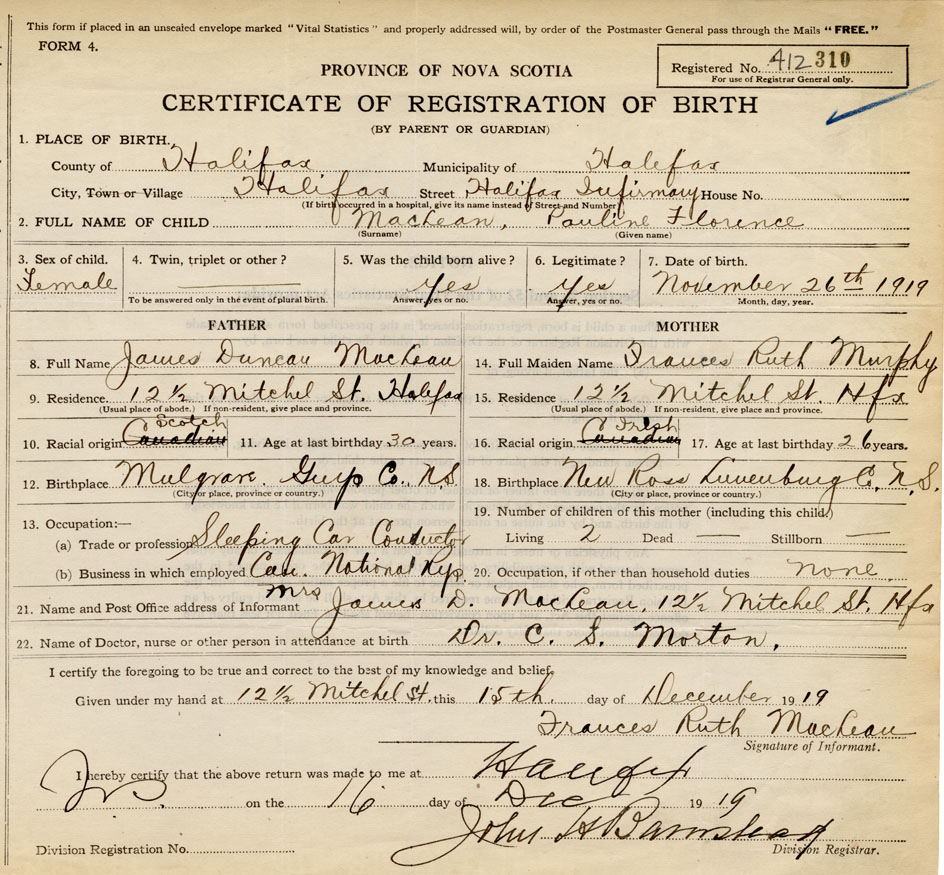 This form if placed in an unsealed envelope marked "Vital Statistics" and properly addressed will, by order of the Postmaster General pass through the Mails "FREE."
FORM 4.
Registered No. 412 310
For use of Registrar General only.
PROVINCE OF NOVA SCOTIA
CERTIFICATE OF REGISTRATION OF BIRTH
(BY PARENT OR GUARDIAN)
1. PLACE OF BIRTH.
County of Halifax Municipality of Halifax
City, Town or Village Halifax Street Halifax Infirmary House No.
(If birth occurred in a hospital, give its name instead of Street and Number)
2. FULL NAME OF CHILD MacLean, Pauline Florence
(Surname) (Given name)
3. Sex of child. 4. Twin, triplet or other? 5. Was the child born alive? 6. Legitimate? 7. Date of birth.
Female Yes Yes November 26th 1919
To be answered only in the event of plural birth. Answer, yes or no. Answer, yes or no. Month, day, year.
FATHER MOTHER
8. Full Name James Duncan MacLean 14. Full Maiden Name Frances Ruth Murphy
9. Residence 12 ½ Mitchel St. Halifax 15. Residence 12 ½ Mitchel St. Hfx
(Usual place of abode.) If non-resident, give place and province. (Usual place of abode.) If non-resident, give place and province.
Scotch Irish
10. Racial origin Canadian 11. Age at last birthday 30 years. 16. Racial origin Canadian 17. Age at last birthday 26 years.
12. Birthplace Mulgrave. Guys Co. N.S. 18. Birthplace New Ross Lunenburg Co. N.S.
(City or place, province or country.) (City or place, province or country.)
13. Occupation:— 19. Number of children of this mother (including this child)
(a) Trade or profession Sleeping Car Conductor Living 2 Dead — Stillborn —
(b) Business in which employed Can. National Rys. 20. Occupation, if other than household duties none
21. Name and Post Office address of Informant Mrs James D. MacLean, 12½ Mitchel St. Hfx
22. Name of Doctor, nurse or other person in attendance at birth Dr. C. S. Morton.
I certify the foregoing to be true and correct to the best of my knowledge and belief.
Given under my hand at 12 ½ Mitchel St. this 15th. day of December 1919
Frances Ruth MacLean
Signature of Informant.
I hereby certify that the above return was made to me at Halifax
on the 16 day of Dec 1919
John H Barnstead
Division Registration No. Division Registrar.